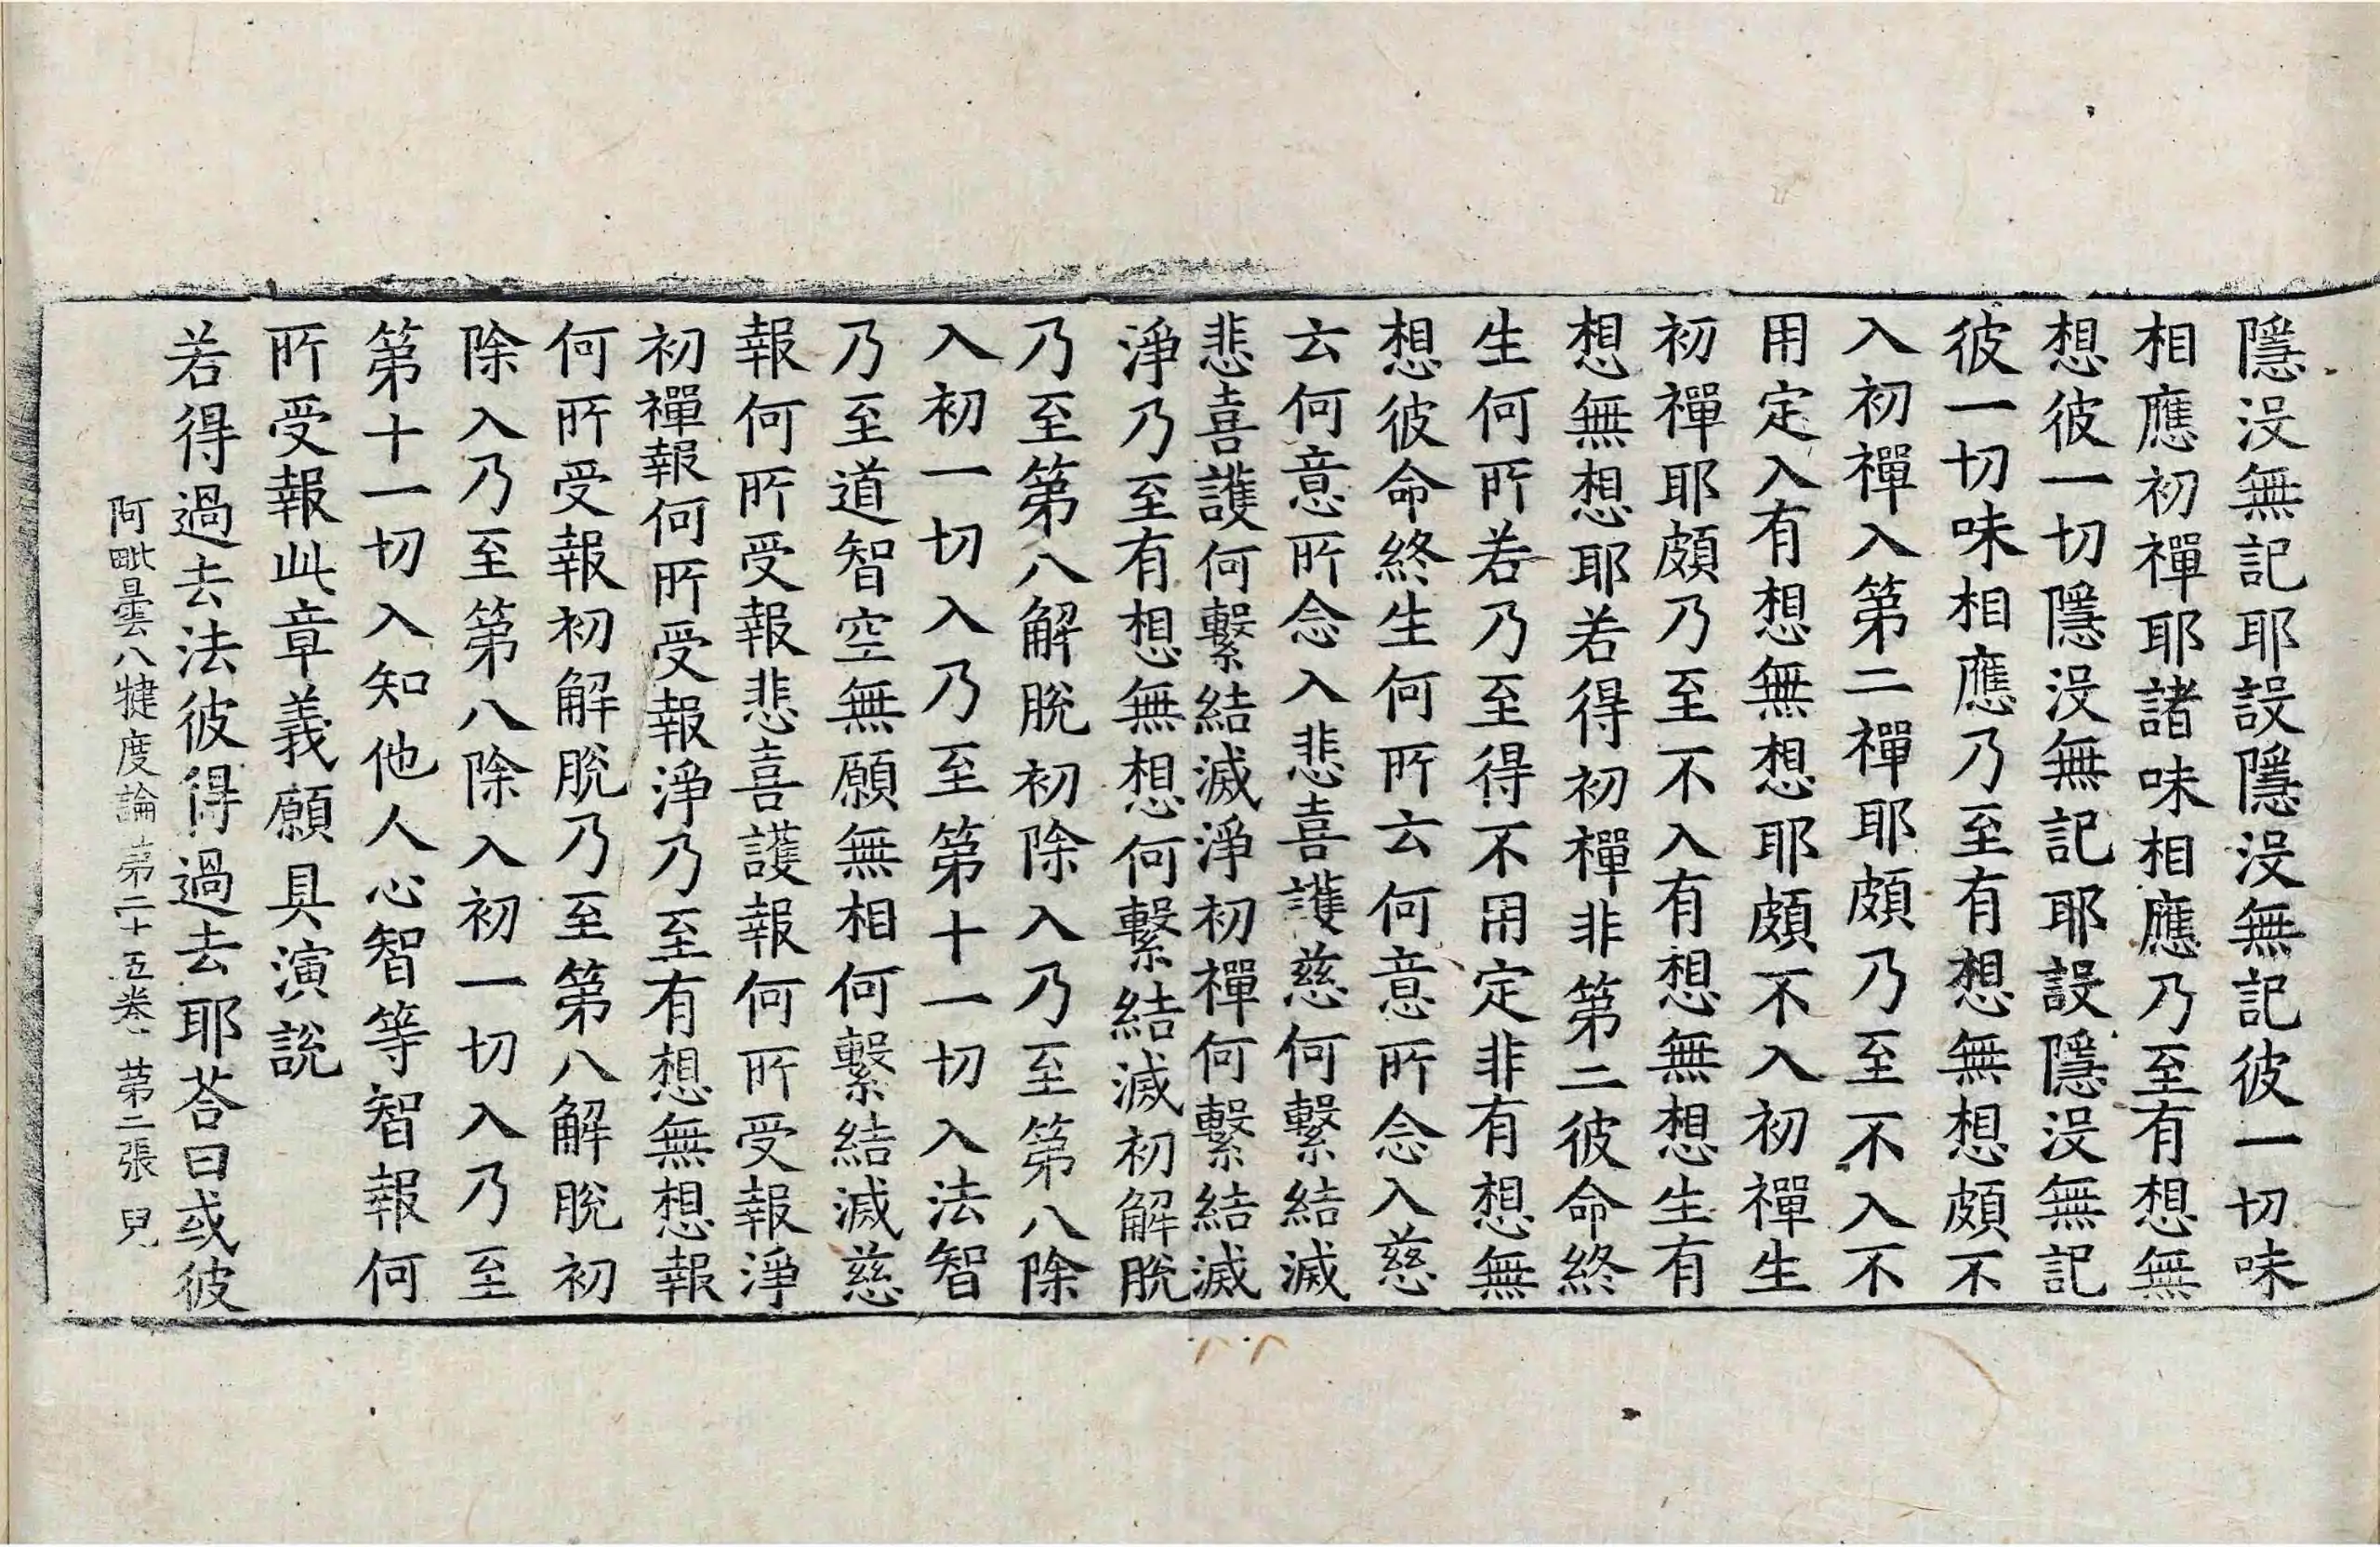 隱没無記耶設隱没無記彼一切味
相應初禪耶諸味相應乃至有想無
想彼一切隱没無記耶設隱没無記
彼一切味相應乃至有想無想頗不
入初禪入第二禪耶頗乃至不入不
用定入有想無想耶頗不入初禪生
初禪耶頗乃至不入有想無想生有
想無想耶若得初禪非第二彼命終
生何所若乃至得不用定非有想無
想彼命終生何所云何意所念入慈
云何意所念入悲喜護慈何繫結滅
悲喜護何繫結滅淨初禪何繫結滅
淨乃至有想無想何繫結滅初解脫
乃至第八解脫初除入乃至第八除
入初一切入乃至第十一切入法智
乃至道智空無願無相何繫結滅慈
報何所受報悲喜護報何所受報淨
初禪報何所受報淨乃至有想無想報
何所受報初解脫乃至第八解脫初
除入乃至第八除入初一切入乃至
第十一切入知他人心智等智報何
所受報此章義願具演說
若得過去法彼得過去耶荅曰或彼
阿毗曇八犍度論第二十五卷 第二張 兒